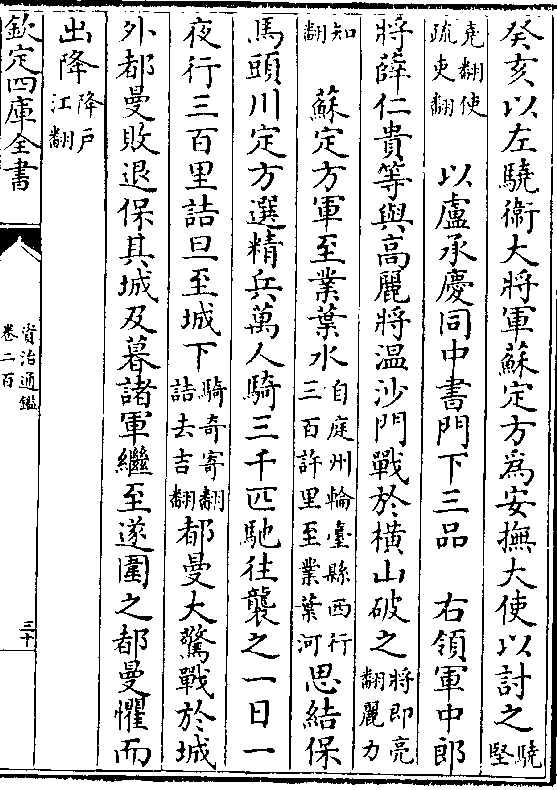 癸亥以左驍衞大將軍蘇定方爲安撫大使以討之驍堅
堯翻使疏吏翻　以盧承慶同中書門下三品　右領軍中郎
將薛仁貴等與高麗將温沙門戰於橫山破之將即亮翻麗力
知翻　蘇定方軍至業葉水自庭州輪臺縣西行三百許里至業葉河思結保
馬頭川定方選精兵萬人騎三千匹馳往襲之一日一
夜行三百里詰旦至城下騎奇寄翻詰去吉翻都曼大驚戰於城
外都曼敗退保其城及暮諸軍繼至遂圍之都曼懼而
出降降戶江翻
欽定四庫全書
資治通鑑
卷二百
三十